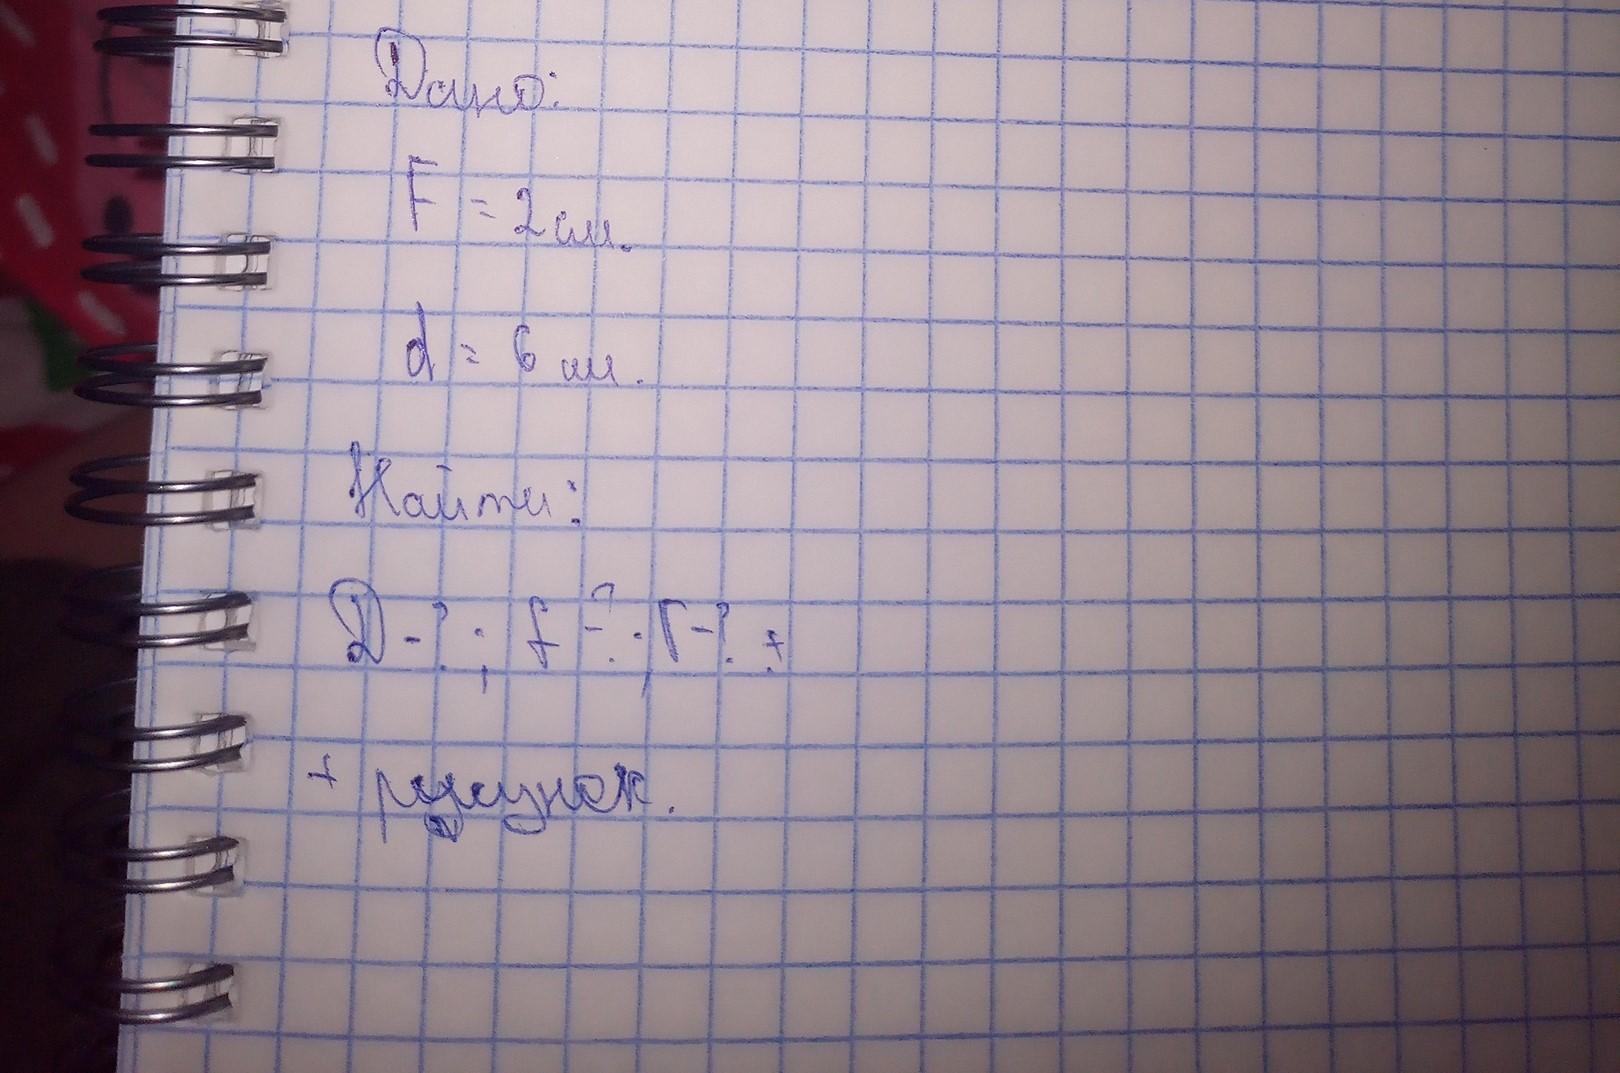 Дано:
F = 2 см.
d = 6 см.
Найти:
D - ? ; f - ? ; Г - ? +
+ рисунок.